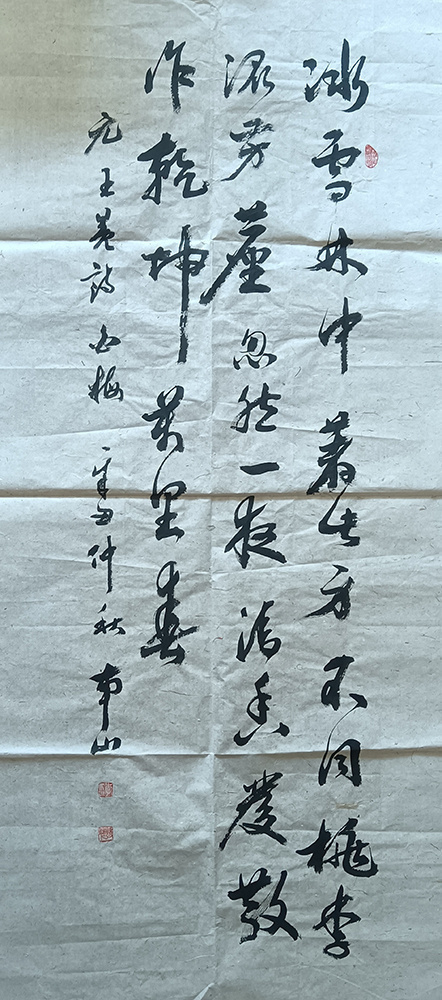 冰雪林中着此身不同桃李
混芳塵忽然一夜清香發散
作乾坤萬里春
元王冕詩白梅 辛丑仲秋 山